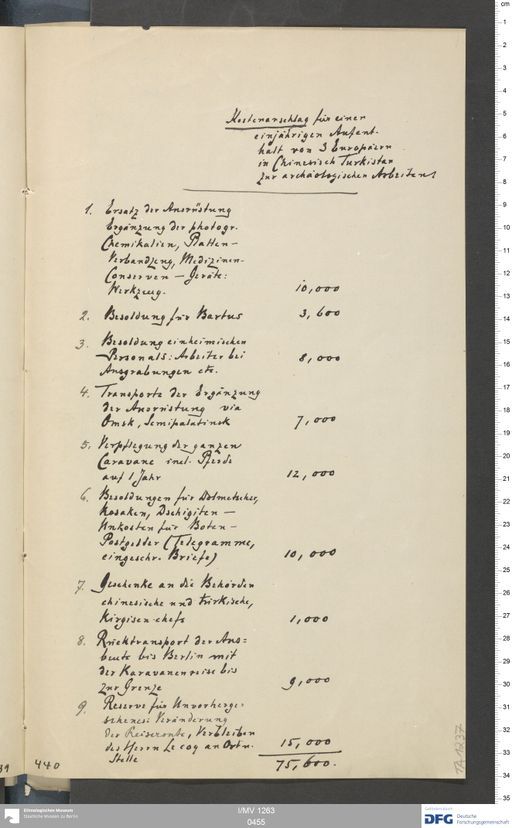 Kostenanschlag für einen
einjährigen Aufent-
halt von 3 Europäern
in Chinesisch Turkistan
zur archäologischen Arbeiten
1. Ersatz der Ausrüstung
Ergänzung der photogr.
Chemikalien, Platten-
Verbandzeug, Medizinen-
Conserven - Geräte:
Werkzeug. 10,000
2. Besoldung für Bartus 3,600
3. Besoldung einheimischen
Personals: Arbeiter bei 8,000
Ausgrabungen etc.
4. Transporte der Ergänzung
der Ausrüstung via
Omsk, Semipalatinsk 7,000
5. Verpflegung der ganzen
Caravane incl. Pferde
auf 1 Jahr 12,000
6. Besoldungen für Dolmetscher,
Kosaken, Dschigiten -
Unkosten für Boten -
Postgelder (Telegramme,
eingeschr. Briefe) 10,000
7. Geschenke an die Behörden
chinesische und türkische,
Kirgisen-chefs 1,000
8. Rücktransport der Aus=
beute bis Berlin mit
der Karavanenreise bis
zur Grenze 9,000
9. Reserve für Unvorherge-
sehenes: Veränderung
der Reiseroute, Verbleiben
des Herrn Le coq an Ort u. 15,000
Stelle 75,600.
440
TA 1237
I/MV 1263
0455
Ethnologisches Museum
Staatliche Museen zu Berlin
Gefördert durch
DFG Deutsche
Forschungsgemeinschaft
cm
1
2
3
4
5
6
7
8
9
10
11
12
13
14
15
16
17
18
19
20
21
22
23
24
25
26
27
28
29
30
31
32
33
34
35